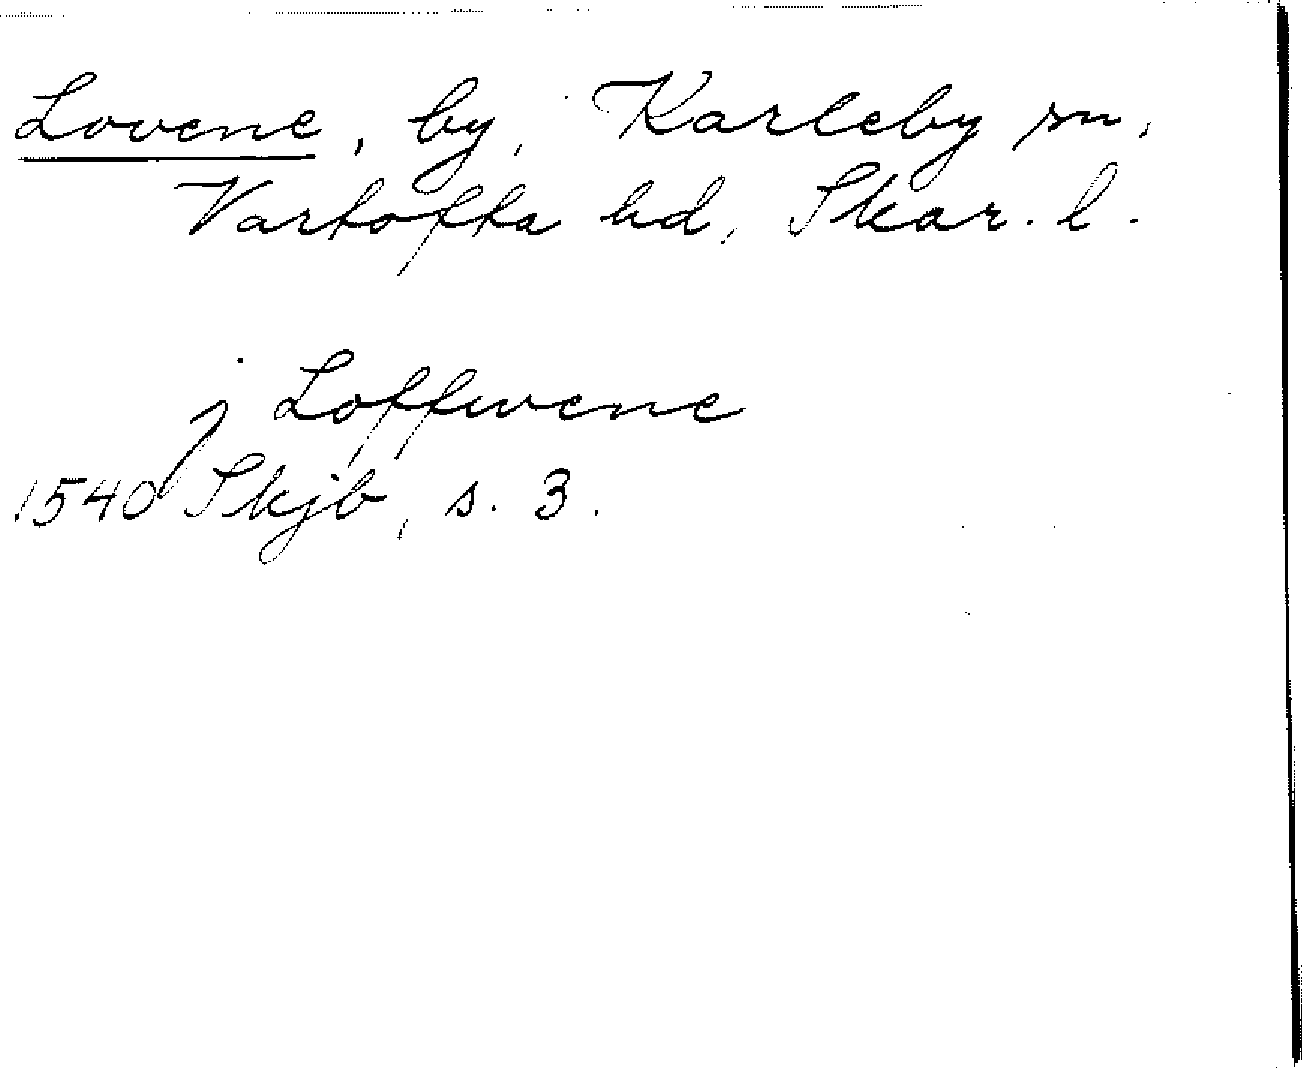 Lovene, by, Karleby sn,
Vartofta hd, Skar. l.
j Loffwene
1540 Skjb, s. 3.